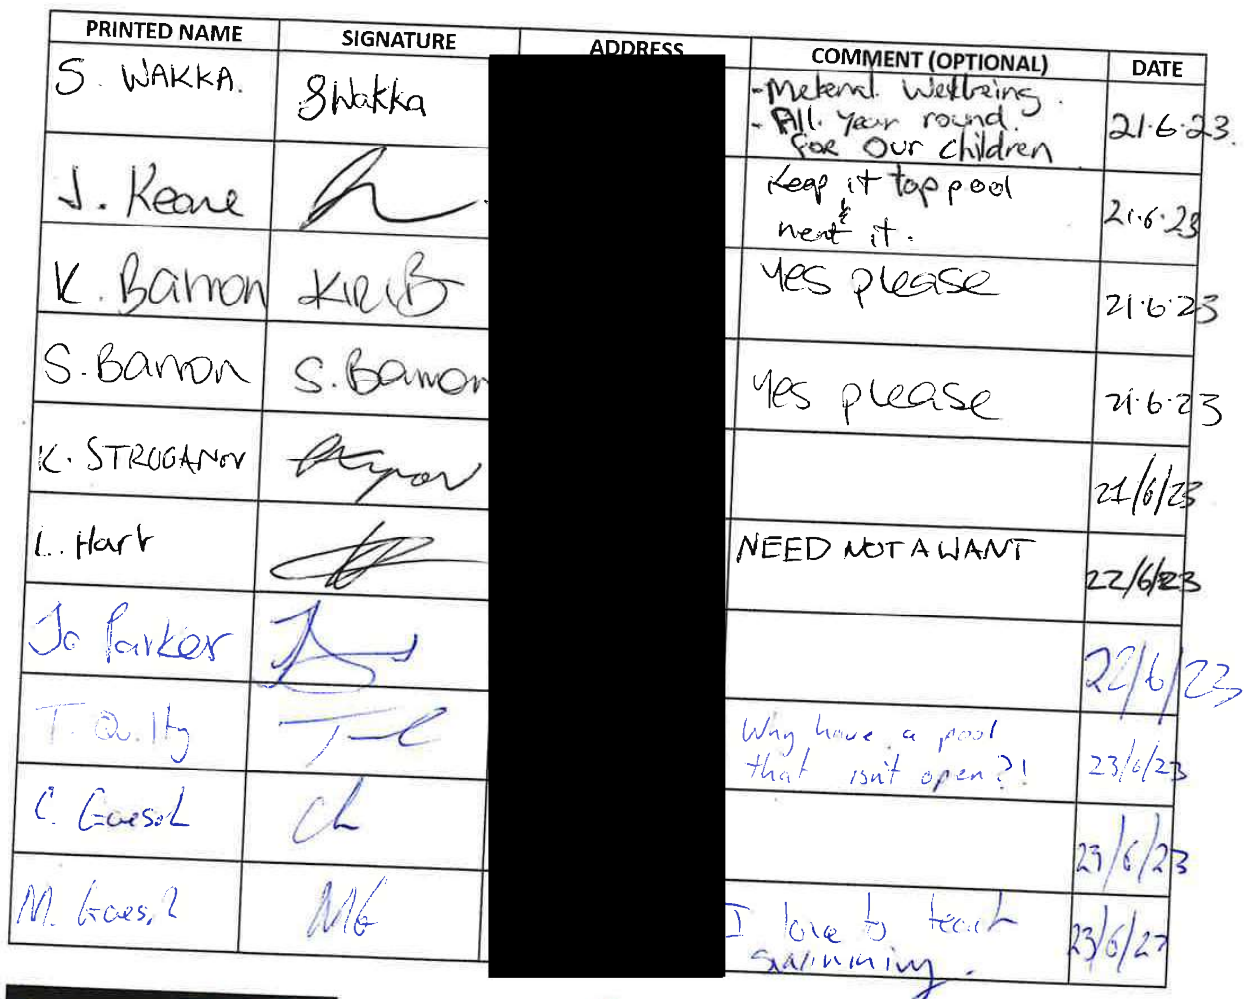 PRINTED NAME SIGNATURE ADDRESS COMMENT (OPTIONAL) DATE
S. WAKKA. SWakka -Maternal Wellbeing. 21.6.23.
- All year round.
for our children
J. Keane Keep it top pool 21.6.23
& heat it.
K. Barron KIRIB yes please 21.6.23
S. Barron S. Barron yes please 21.6.23
K. STROGANOV 21/6/23
L. Hart NEED NOT A WANT 22/6/23
Jo Parker 22/6/23
T. Quilty Why have a pool 23/6/23
that isn't open?!
C. 23/6/23
M. MG I love to teach 23/6/23
swimming.